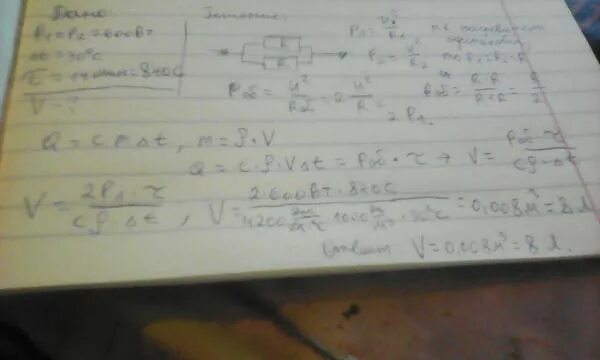 Дано:
P₁ = P₂ = 600 Вт
Δt = 30°C
τ = 14 мин = 840 С
V - ?
Решение:
R
R
P₁ = U²/R₁
P₂ = U²/R₂ то R₁ = R₂ = R
Pб = U²/Rб = 2 U²/R = 2P₁.
Rб = R·R/R+R = R/2
Q = c m Δt, m = ρ·V
Q = c·ρ·VΔt = Pб·τ → V = Pб·τ/cρ·Δt
V = 2P₁·τ/cρ·Δt, V = 2·600Вт·840С/4200 Дж/кг°C·1000 кг/м³·30°C = 0,008 м³ = 8 л
Ответ: V = 0,008 м³ = 8 л.